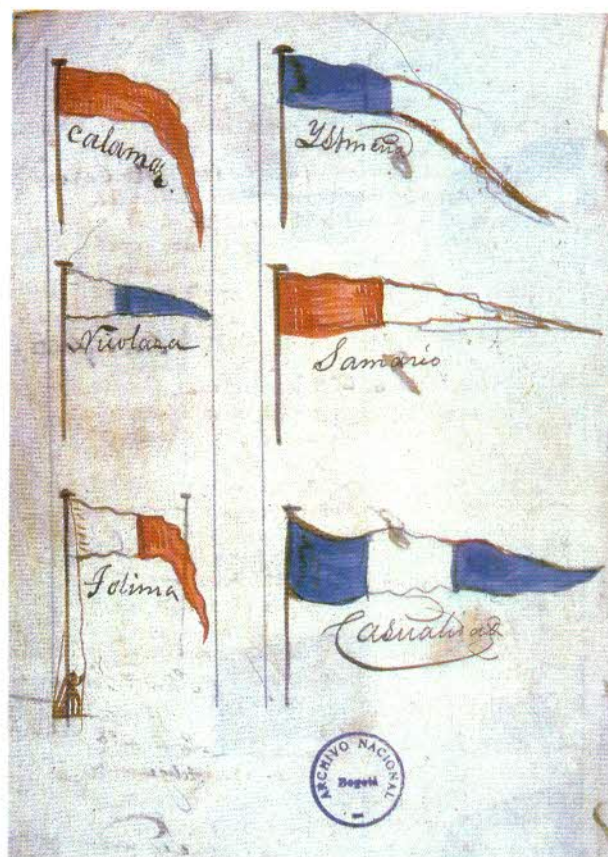 Calamar.
Nicolasa
Tolima
Ystmeña
Samario
Casualidad
ARCHIVO NACIONAL
Bogotá